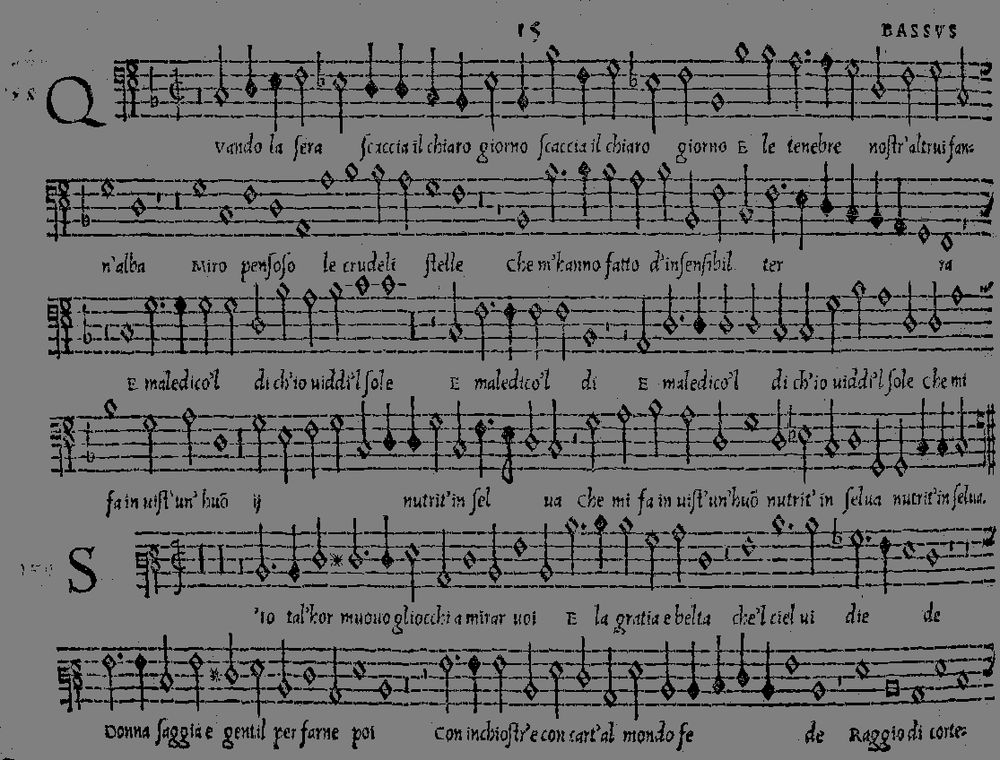 15 BASSVS
Q
Vando la sera ſcaccia il chiaro giorno ſcaccia il chiaro giorno E le tenebre noſtr'altrui fan-
n'alba Miro penſoſo le crudeli ſtelle Che m'hanno fatto d'inſenſibil ter ra
E maledico'l di ch'io uiddi'l ſole E maledico'l di E maledico'l di ch'io uiddi'l ſole Che mi
fa in uiſt'un' huō ij nutrit'in ſel ua Che mi fa in uiſt'un'huō nutrit' in ſelua nutrit'in ſelua.
S
'Io tal'hor muouo gliocchi a mirar uoi E la gratia e belta che'l ciel ui die de
Donna ſaggia e gentil per farne poi Con inchioſtr'e con cart'al mondo fe de Raggio di corte-